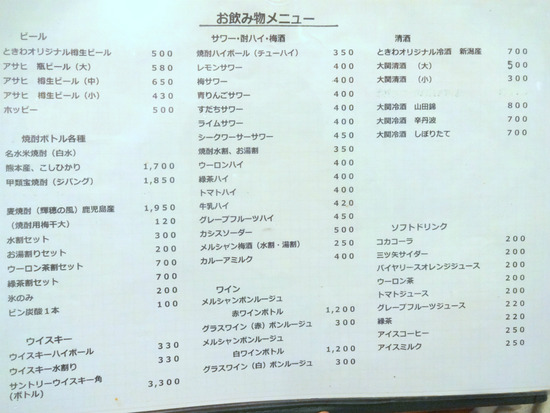 お飲み物メニュー
ビール
ときわオリジナル樽生ビール 500
アサヒ 瓶ビール（大） 580
アサヒ 樽生ビール（中） 650
アサヒ 樽生ビール（小） 430
ホッピー 500
焼酎ボトル各種
名水米焼酎（白水）
熊本産、こしひかり 1,700
甲類宝焼酎（ジパング） 1,850
麦焼酎（輝穂の風）鹿児島産 1,950
（焼酎用梅干大） 120
水割セット 300
お湯割りセット 200
ウーロン茶割セット 700
緑茶割セット 700
氷のみ 200
ビン炭酸１本 100
ウイスキー
ウイスキーハイボール 330
ウイスキー水割り 330
サントリーウイスキー角 3,300
（ボトル）
サワー・酎ハイ・梅酒
焼酎ハイボール（チューハイ） 350
レモンサワー 400
梅サワー 400
青りんごサワー 400
すだちサワー 400
ライムサワー 400
シークワーサーサワー 450
焼酎水割、お湯割 350
ウーロンハイ 400
緑茶ハイ 400
トマトハイ 400
牛乳ハイ 420
グレープフルーツハイ 450
カシスソーダー 500
メルシャン梅酒（水割・湯割） 250
カルーアミルク 400
ワイン
メルシャンボンルージュ
赤ワインボトル 1,200
グラスワイン（赤）ボンルージュ 300
メルシャンボンルージュ
白ワインボトル 1,200
グラスワイン（白）ボンルージュ 300
清酒
ときわオリジナル冷酒 新潟産 700
大関清酒 （大） 500
大関清酒 （小） 300
大関冷酒 山田錦 800
大関冷酒 辛丹波 700
大関冷酒 しぼりたて 700
ソフトドリンク
コカコーラ 200
三ツ矢サイダー 200
バイヤリースオレンジジュース 200
ウーロン茶 200
トマトジュース 200
グレープフルーツジュース 220
緑茶 220
アイスコーヒー 250
アイスミルク 250